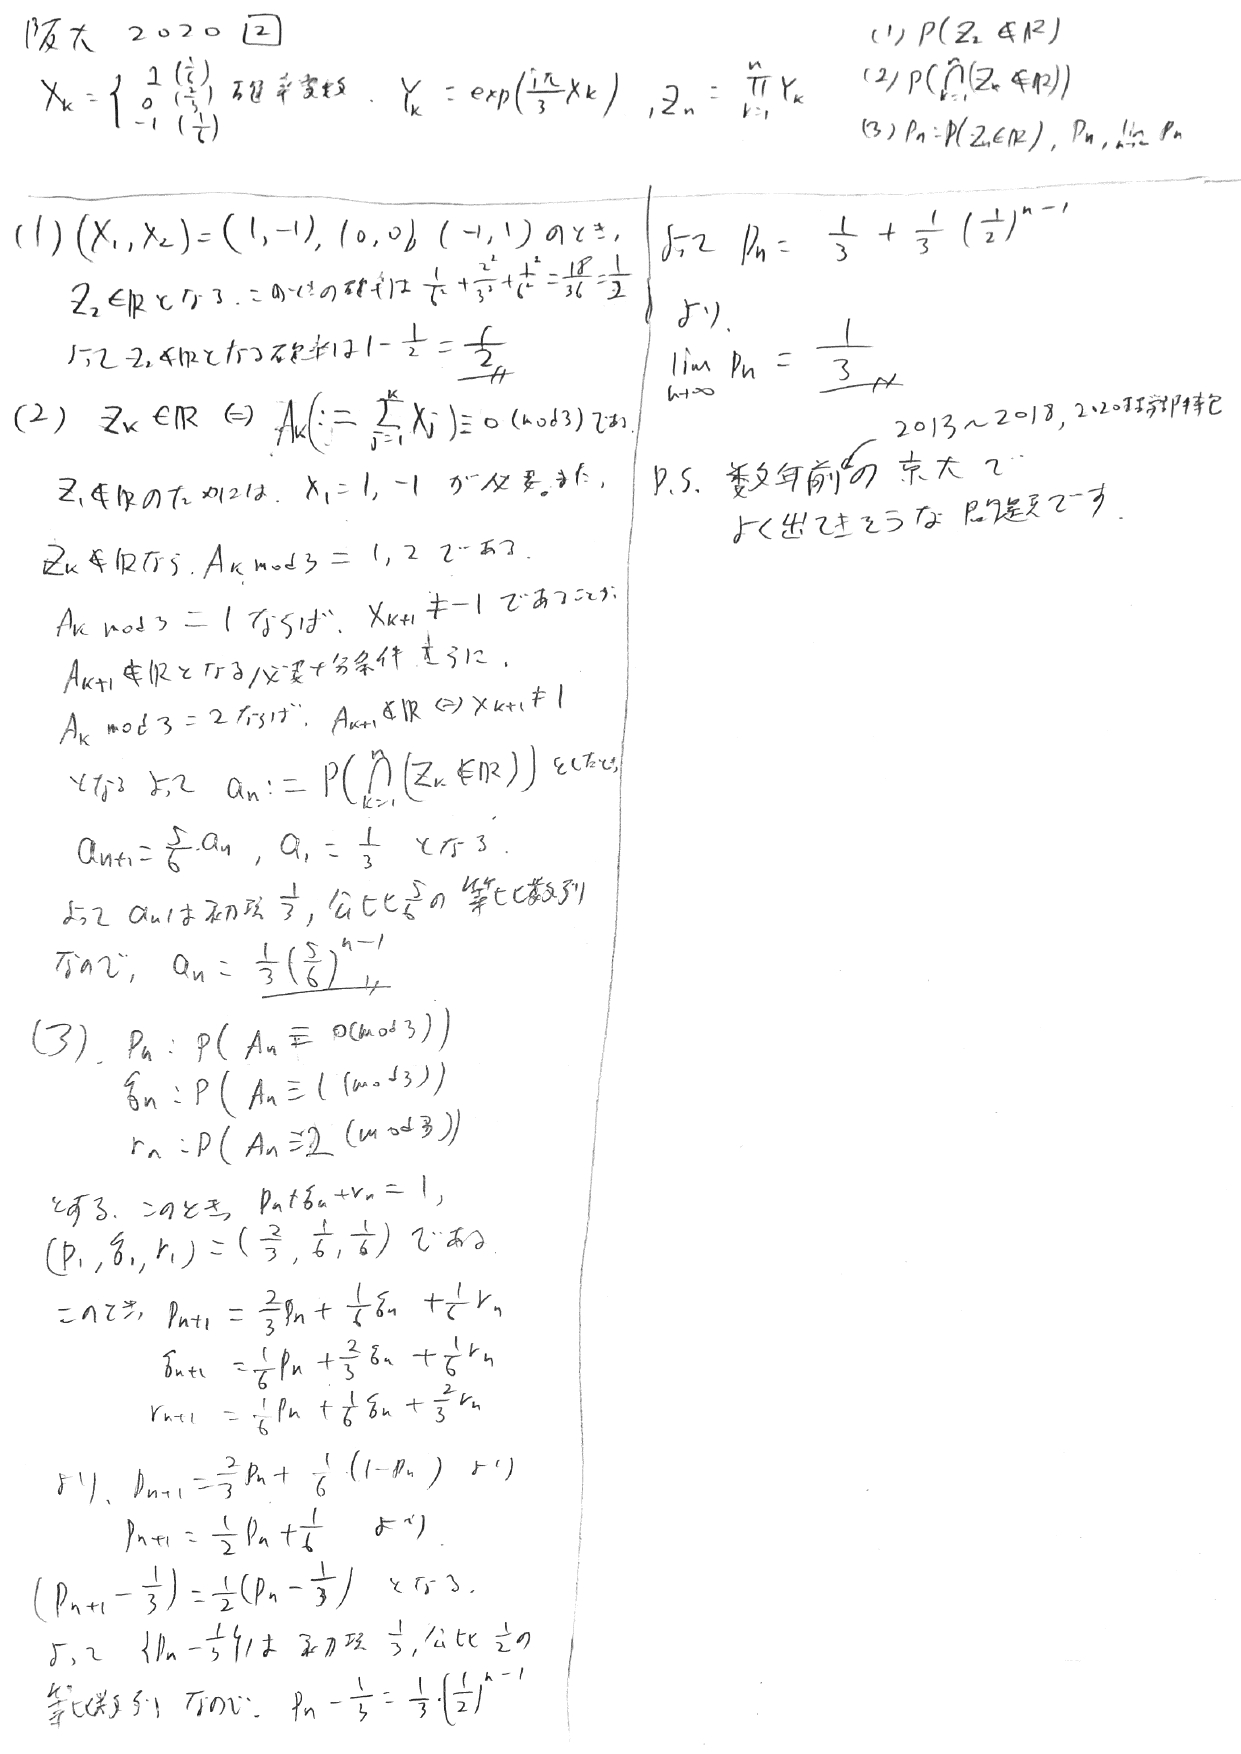 阪大 2020 [2]
X_k = { 1 (1/6) 0 (2/3) -1 (1/6) 確率変数. Y_k = exp(iπ/3 X_k), Z_n = ∏_{k=1}^{n} Y_k
(1) P(Z_2 ∉ ℝ)
(2) P(⋂_{k=1}^{n}(Z_k ∉ ℝ))
(3) P_n = P(Z_n ∈ ℝ), P_n, lim_{n→∞} P_n
(1) (X_1, X_2) = (1, -1), (0, 0), (-1, 1) のとき,
Z_2 ∈ ℝ となる. このときの確率は 1/6² + 2²/3² + 1/6² = 18/36 = 1/2
よって Z_2 ∉ ℝ となる確率は 1 - 1/2 = 1/2
(2) Z_k ∈ ℝ ⇔ A_k(:= Σ_{j=1}^{k} X_j) ≡ 0 (mod 3) である.
Z_1 ∉ ℝ のためには. X_1 = 1, -1 が必要。また,
Z_k ∉ ℝ なら. A_k mod 3 = 1, 2 である.
A_k mod 3 = 1 ならば. X_{k+1} ≠ -1 であることが
A_{k+1} ∉ ℝ となる必要十分条件 さらに,
A_k mod 3 = 2 ならば. A_{k+1} ∉ ℝ ⇔ X_{k+1} ≠ 1
となる よって a_n := P(⋂_{k=1}^{n}(Z_k ∉ ℝ)) としたとき
a_{n+1} = 5/6 · a_n, a_1 = 1/3 となる.
よって a_n は初項 1/3, 公比 5/6 の等比数列
なので, a_n = 1/3 (5/6)^{n-1}
(3). P_n : P(A_n ≡ 0 (mod 3))
q_n : P(A_n ≡ 1 (mod 3))
r_n : P(A_n ≡ 2 (mod 3))
とする. このとき, P_n + q_n + r_n = 1,
(P_1, q_1, r_1) = (2/3, 1/6, 1/6) である
このとき, P_{n+1} = 2/3 P_n + 1/6 q_n + 1/6 r_n
q_{n+1} = 1/6 P_n + 2/3 q_n + 1/6 r_n
r_{n+1} = 1/6 P_n + 1/6 q_n + 2/3 r_n
より. P_{n+1} = 2/3 P_n + 1/6 · (1 - P_n) より
P_{n+1} = 1/2 P_n + 1/6 より
(P_{n+1} - 1/3) = 1/2 (P_n - 1/3) となる.
よって {P_n - 1/3} は 初項 1/3, 公比 1/2 の
等比数列 なので. P_n - 1/3 = 1/3 · (1/2)^{n-1}
よって P_n = 1/3 + 1/3 (1/2)^{n-1}
より.
lim_{n→∞} P_n = 1/3
2013~2018, 2020
P.S. 数年前の京大で
よく出てきそうな問題です.